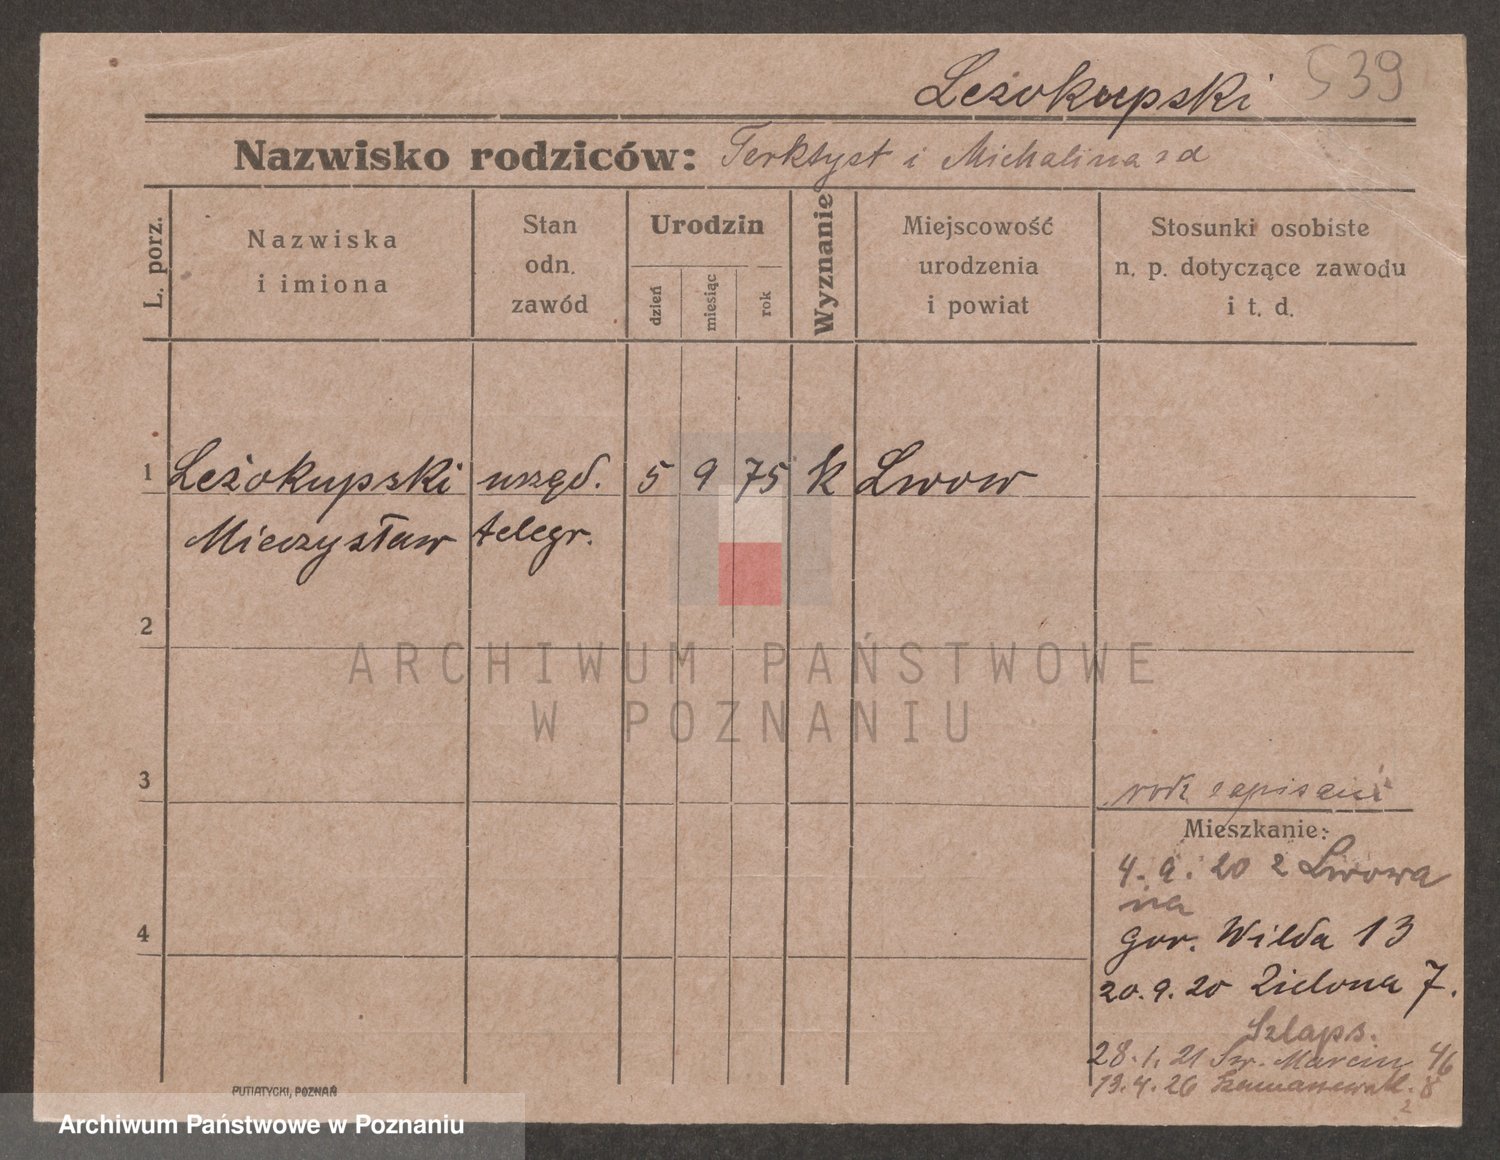 Leżokupski 539
Nazwisko rodziców: Terktyst i Michalina
L. porz.
Nazwiska i imiona
Stan odn. zawód
Urodzin
dzień
miesiąc
rok
Wyznanie
Miejscowość urodzenia i powiat
Stosunki osobiste n. p. dotyczące zawodu i t. d.
1 Leżokupski urzęd. 5 9 75 k Lwow
Mieczysław telegr.
2
ARCHIWUM PAŃSTWOWE
W POZNANIU
3
rok
Mieszkanie:
4. 9. 20 z Lwowa
na
4
gór. Wilda 13
20. 9. 20 Zielona 7.
Szlaps.
28. 1. 21 Św. Marcin 46
19. 4. 26 8
PUTIATYCKI, POZNAŃ
Archiwum Państwowe w Poznaniu